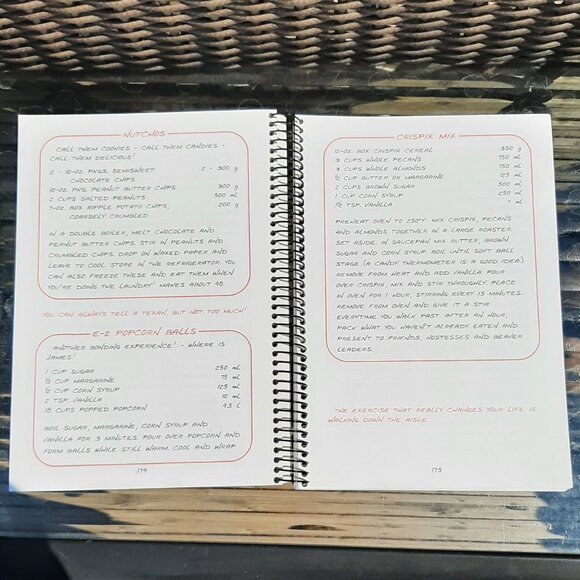 NUTCHOS
CALL THEM COOKIES - CALL THEM CANDIES -
CALL THEM DELICIOUS!
2 - 10-OZ. PKGS. SEMISWEET 2 - 300 g
CHOCOLATE CHIPS
10-OZ. PKG. PEANUT BUTTER CHIPS 300 g
2 CUPS SALTED PEANUTS 500 mL
7-OZ. BOX RIPPLE POTATO CHIPS, 200 g
COARSELY CRUMBLED
IN A DOUBLE BOILER, MELT CHOCOLATE AND
PEANUT BUTTER CHIPS. STIR IN PEANUTS AND
CRUMBLED CHIPS. DROP ON WAXED PAPER AND
LEAVE TO COOL. STORE IN THE REFRIGERATOR. YOU
CAN ALSO FREEZE THESE AND EAT THEM WHEN
YOU'RE DOING THE LAUNDRY! MAKES ABOUT 48.
YOU CAN ALWAYS TELL A TEXAN, BUT NOT TOO MUCH!
E-Z POPCORN BALLS
ANOTHER BONDING EXPERIENCE! - WHERE IS
JAMES!
1 CUP SUGAR 250 mL
⅓ CUP MARGARINE 75 mL
½ CUP CORN SYRUP 125 mL
2 TSP. VANILLA 10 mL
18 CUPS POPPED POPCORN 4.5 L
BOIL SUGAR, MARGARINE, CORN SYRUP AND
VANILLA FOR 3 MINUTES. POUR OVER POPCORN AND
FORM BALLS WHILE STILL WARM. COOL AND WRAP.
174
CRISPIX MIX
12-OZ. BOX CRISPIX CEREAL 350 g
3 CUPS WHOLE PECANS 750 mL
3 CUPS WHOLE ALMONDS 750 mL
½ CUP BUTTER OR MARGARINE 125 mL
2 CUPS BROWN SUGAR 500 mL
1 CUP CORN SYRUP 250 mL
1½ TSP. VANILLA 7 mL
PREHEAT OVEN TO 250°F. MIX CRISPIX, PECANS
AND ALMONDS TOGETHER IN A LARGE ROASTER.
SET ASIDE. IN SAUCEPAN MIX BUTTER, BROWN
SUGAR AND CORN SYRUP. BOIL UNTIL SOFT BALL
STAGE (A CANDY THERMOMETER IS A GOOD IDEA.)
REMOVE FROM HEAT AND ADD VANILLA. POUR
OVER CRISPIX, MIX AND STIR THROUGHLY. PLACE
IN OVEN FOR 1 HOUR, STIRRING EVERY 15 MINUTES.
REMOVE FROM OVEN AND GIVE IT A STIR
EVERYTIME YOU WALK PAST. AFTER AN HOUR,
PACK WHAT YOU HAVEN'T ALREADY EATEN AND
PRESENT TO FRIENDS, HOSTESSES AND BEAVER
LEADERS.
THE EXERCISE THAT REALLY CHANGES YOUR LIFE IS
WALKING DOWN THE AISLE.
175